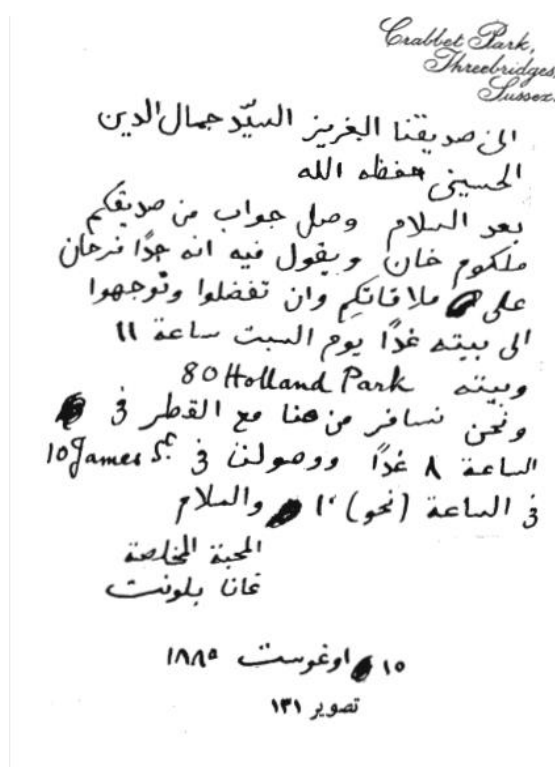 Crabbet Park,
Threebridges,
Sussex.
الى صديقنا العزيز السيّد جمال الدين
الحسينى حفظه الله
بعد السلام وصل جواب من صديقكم
ملكوم خان ويقول فيه انه جدًا فرحان
على ملاقاتكم وان تفضلوا وتوجهوا
الى بيته غدًا يوم السبت ساعة ١١
وبيته 80 Holland Park
ونحن نسافر من هنا مع القطر فى
الساعة ٨ غدًا ووصولنا فى 10 James St
فى الساعة (نحو) ١٠ والسلام
المحبة المخلصة
عانا بلونت
١٥ اوغوست ١٨٨٥
تصوير ١٣١